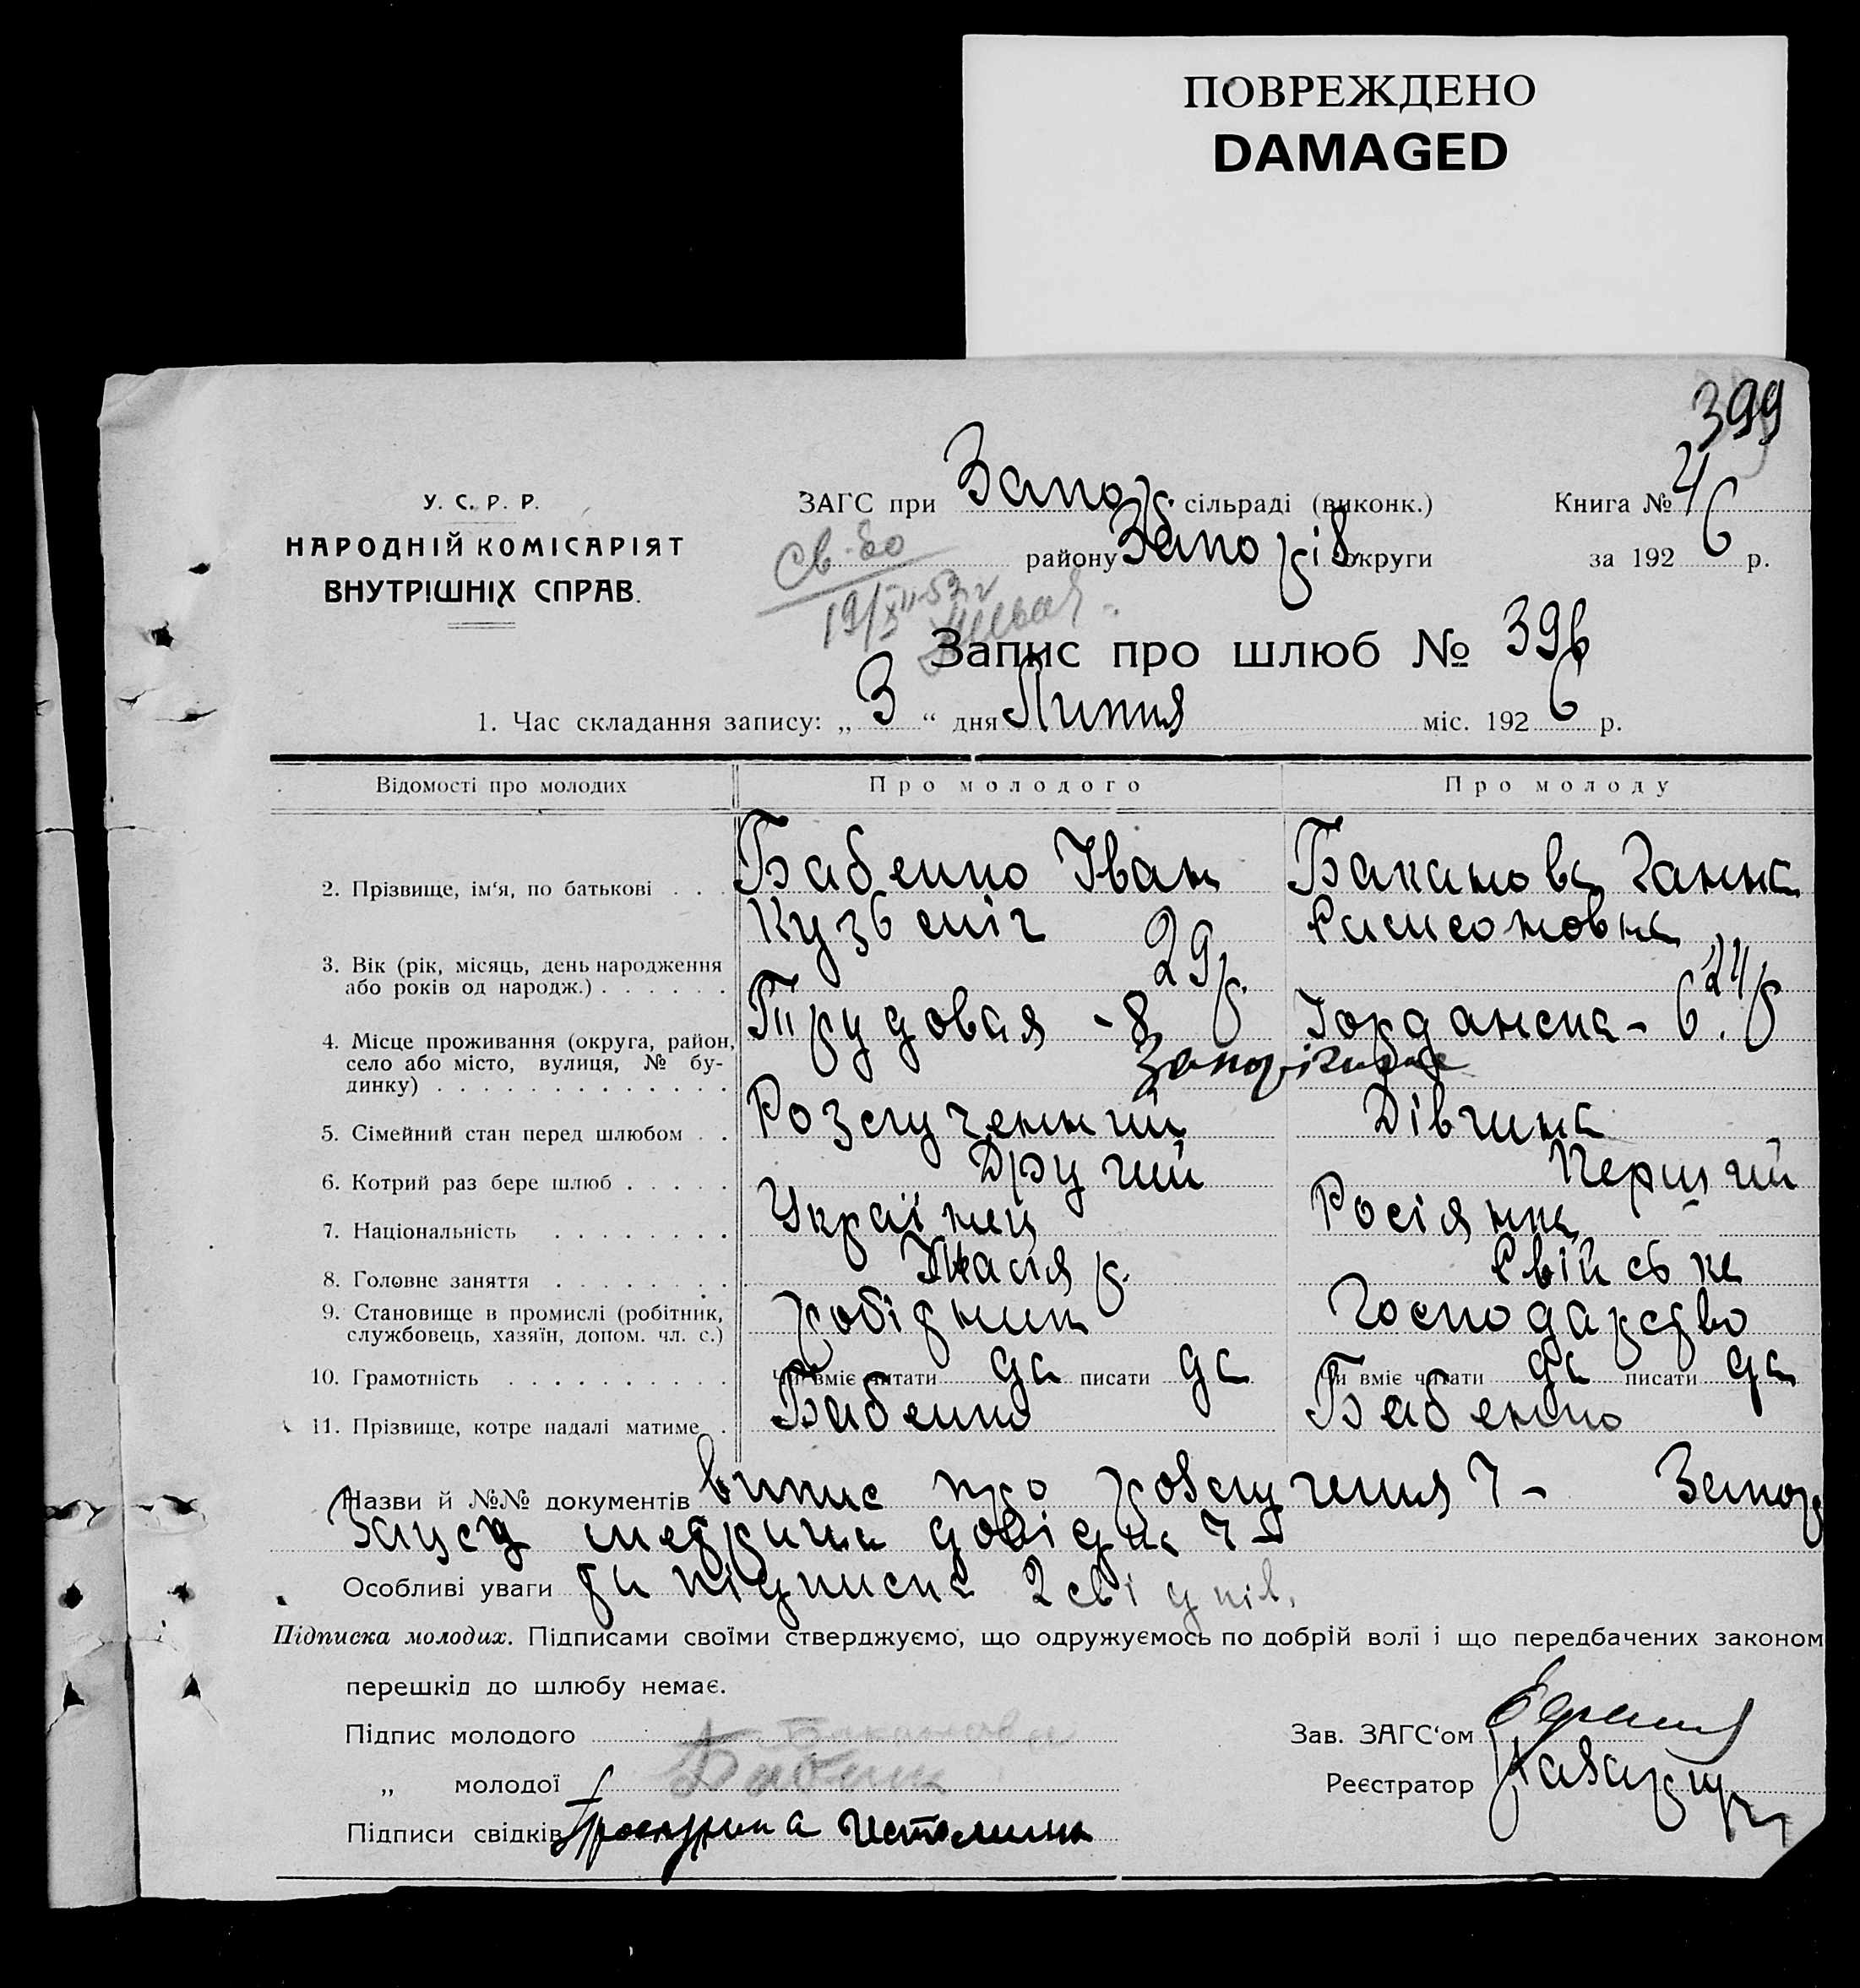 ПОВРЕЖДЕНО
DAMAGED
399
У. С. Р. Р.
НАРОДНІЙ КОМІСАРІЯТ
ВНУТРІШНІХ СПРАВ.
ЗАГС при Запор. сільраді (виконк.) Книга №
району Запоріз округи за 1926 р.
Св-во
Запис про шлюб № 396
1. Час складання запису: „3“ дня Липня міс. 1926 р.
Відомості про молодих Про молодого Про молоду
2. Прізвище, ім‘я, по батькові . . . Бабенко Іван Баканова Ганна
Кузьміч Самсоновна
3. Вік (рік, місяць, день народження
або років од народж.) . . . . . . 29 р. 24 р
4. Місце проживання (округа, район, Трудовая - 8 Іорданська - 6.
село або місто, вулиця, № бу-
динку) . . . . . . . . . . . . Запоріжжя
5. Сімейний стан перед шлюбом . . Розлученний Дівчина
6. Котрий раз бере шлюб . . . . . Другий Перший
7. Національність . . . . . . . . Українец Росіянка
8. Головне заняття . . . . . . . . Маляр. Свійське
9. Становище в промислі (робітник, робітник Господарство
службовець, хазяїн, допом. чл. с.)
10. Грамотність . . . . . . . . . . Чи вміє читати да писати да Чи вміє читати да писати да
11. Прізвище, котре надалі матиме . Бабенко Бабенко
Назви й №№ документів випис про розлучення Запор
метрика довідка
Особливі уваги та підписка 2 свідків.
Підписка молодих. Підписами своїми стверджуємо, що одружуємось по добрій волі і що передбачених законом
перешкід до шлюбу немає.
Підпис молодого Баканова Зав. ЗАГС‘ом
„ молодої Бабенко Реєстратор
Підписи свідків